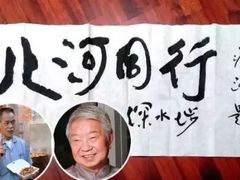 北河同行
深水埗